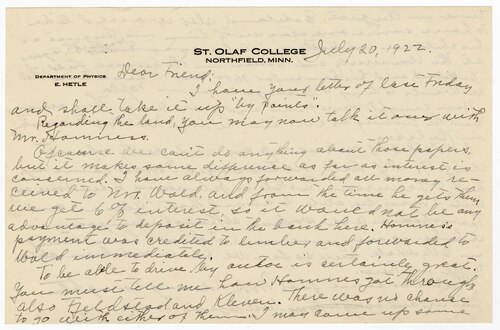 ST. OLAF COLLEGE
NORTHFIELD, MINN.
July 20, 1922.
DEPARTMENT OF PHYSICS
E. HETLE
Dear Friend:
I have your letter of last Friday
and shall take it up "by points".
Regarding the land, you may now talk it over with
Mr. Hamness.
Of course we can't do anything about those papers
but it makes some difference as far as interest is
concerned. I have always forwarded all money re-
ceived to Mr. Wold, and from the time he gets them
we get 6% interest, so it would not be any
advantage to deposit in the bank here. Hamness's
payment was credited to lumber and forwarded to
Wold immediately.
To be able to drive by auto is certainly great.
You must tell me how Hamnes got through
also Fjeldstad and Kleven. There was no chance
to go with either of them. I may come up some